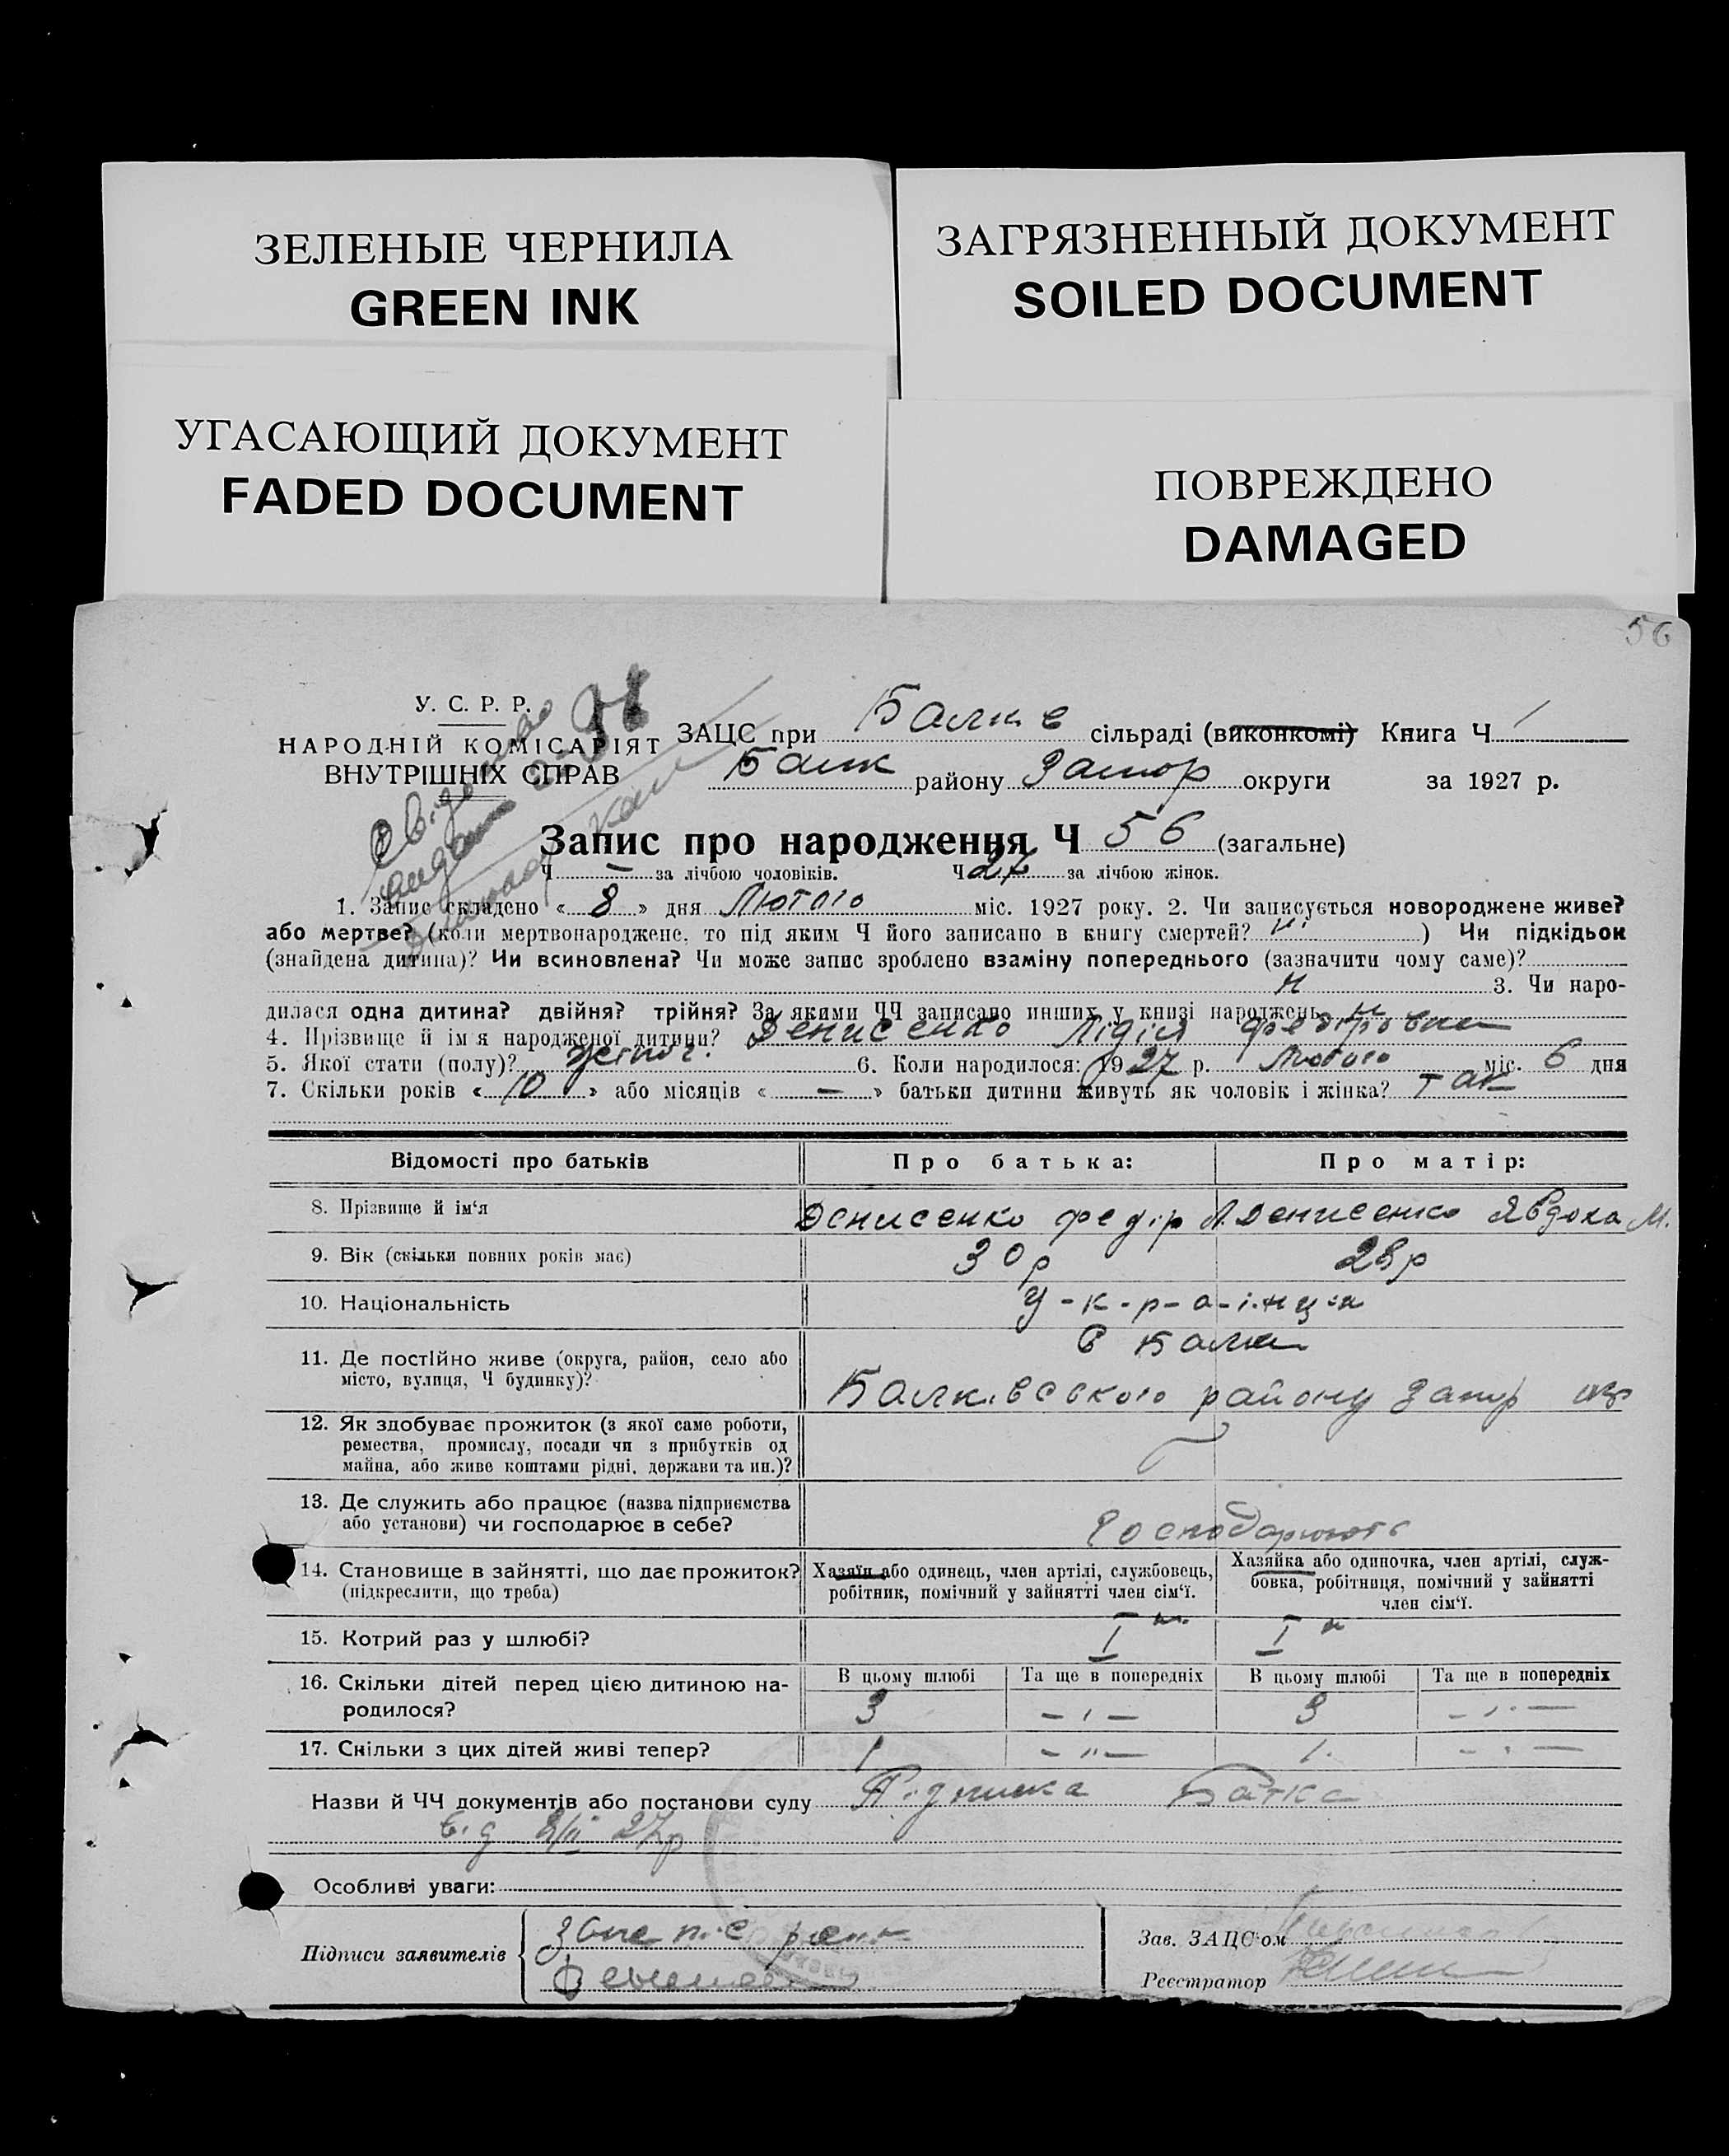 ЗЕЛЕНЫЕ ЧЕРНИЛА
GREEN INK
ЗАГРЯЗНЕННЫЙ ДОКУМЕНТ
SOILED DOCUMENT
УГАСАЮЩИЙ ДОКУМЕНТ
FADED DOCUMENT
ПОВРЕЖДЕНО
DAMAGED
56
У. С. Р. Р.
НАРОДНІЙ КОМІСАРІЯТ
ВНУТРІШНІХ СПРАВ
ЗАЦС при Балків сільраді (виконкомі) Книга Ч 1
Балк району Запор округи за 1927 р.
Запис про народження Ч 56 (загальне)
Ч — за лічбою чоловіків. Ч 27 за лічбою жінок.
1. Запис складено « 8 » дня Лютого міс. 1927 року. 2. Чи записується новороджене живе?
або мертве? (коли мертвонароджене, то під яким Ч його записано в книгу смертей? н. ) Чи підкідьок
(знайдена дитина)? Чи всиновлена? Чи може запис зроблено взаміну попереднього (зазначити чому саме)?
н 3. Чи наро-
дилася одна дитина? двійня? трійня? За якими ЧЧ записано инших у книзі народжень н
4. Прізвище й ім'я народженої дитини? Денисенко Лідія Федіровна
5. Якої стати (полу)? жіноч. 6. Коли народилося: 1927 р. Лютого міс. 6 дня
7. Скільки років « 10 » або місяців « — » батьки дитини живуть як чоловік і жінка? так
Відомості про батьків Про батька: Про матір:
8. Прізвище й ім'я Денисенко Федір Л. Денисенко Явдоха М.
9. Вік (скільки повних років має) 30р 28р
10. Національність У-к-р-а-ї-н-ц-и
11. Де постійно живе (округа, район, село або
місто, вулиця, Ч будинку)?
с Балки
Балківського району Запор окр
12. Як здобуває прожиток (з якої саме роботи,
ремества, промислу, посади чи з прибутків од
майна, або живе коштами рідні, держави та ин.)?
13. Де служить або працює (назва підприємства
або установи) чи господарює в себе?
Господарюють
14. Становище в зайнятті, що дає прожиток?
(підкреслити, що треба)
Хазяїн або одинець, член артілі, службовець,
робітник, помічний у зайнятті член сім'ї.
Хазяйка або одиночка, член артілі, служ-
бовка, робітниця, помічний у зайнятті
член сім'ї.
15. Котрий раз у шлюбі? I I
16. Скільки дітей перед цією дитиною на-
родилося?
В цьому шлюбі Та ще в попередніх В цьому шлюбі Та ще в попередніх
3 — " — 3 — " —
17. Скільки з цих дітей живі тепер? 1 — " — 1. — " —
Назви й ЧЧ документів або постанови суду Підписка батька
від 8/II 27р
Особливі уваги:
Підписи заявителів
Зав. ЗАЦС'ом
Реєстратор